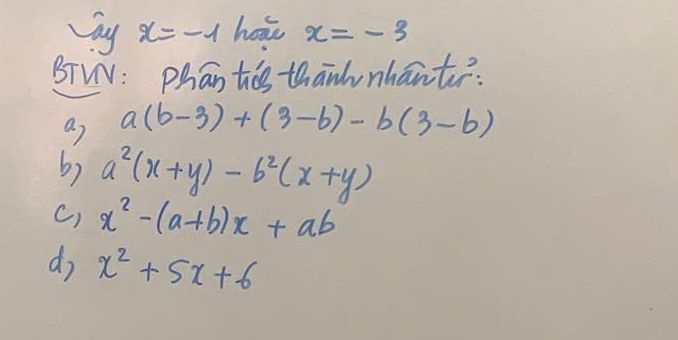 Vậy x = -1 hoặc x = -3
BTVN: Phân tích thành nhân tử:
a, a(b-3) + (3-b) - b(3-b)
b, a²(x+y) - b²(x+y)
c, x² - (a+b)x + ab
d, x² + 5x + 6